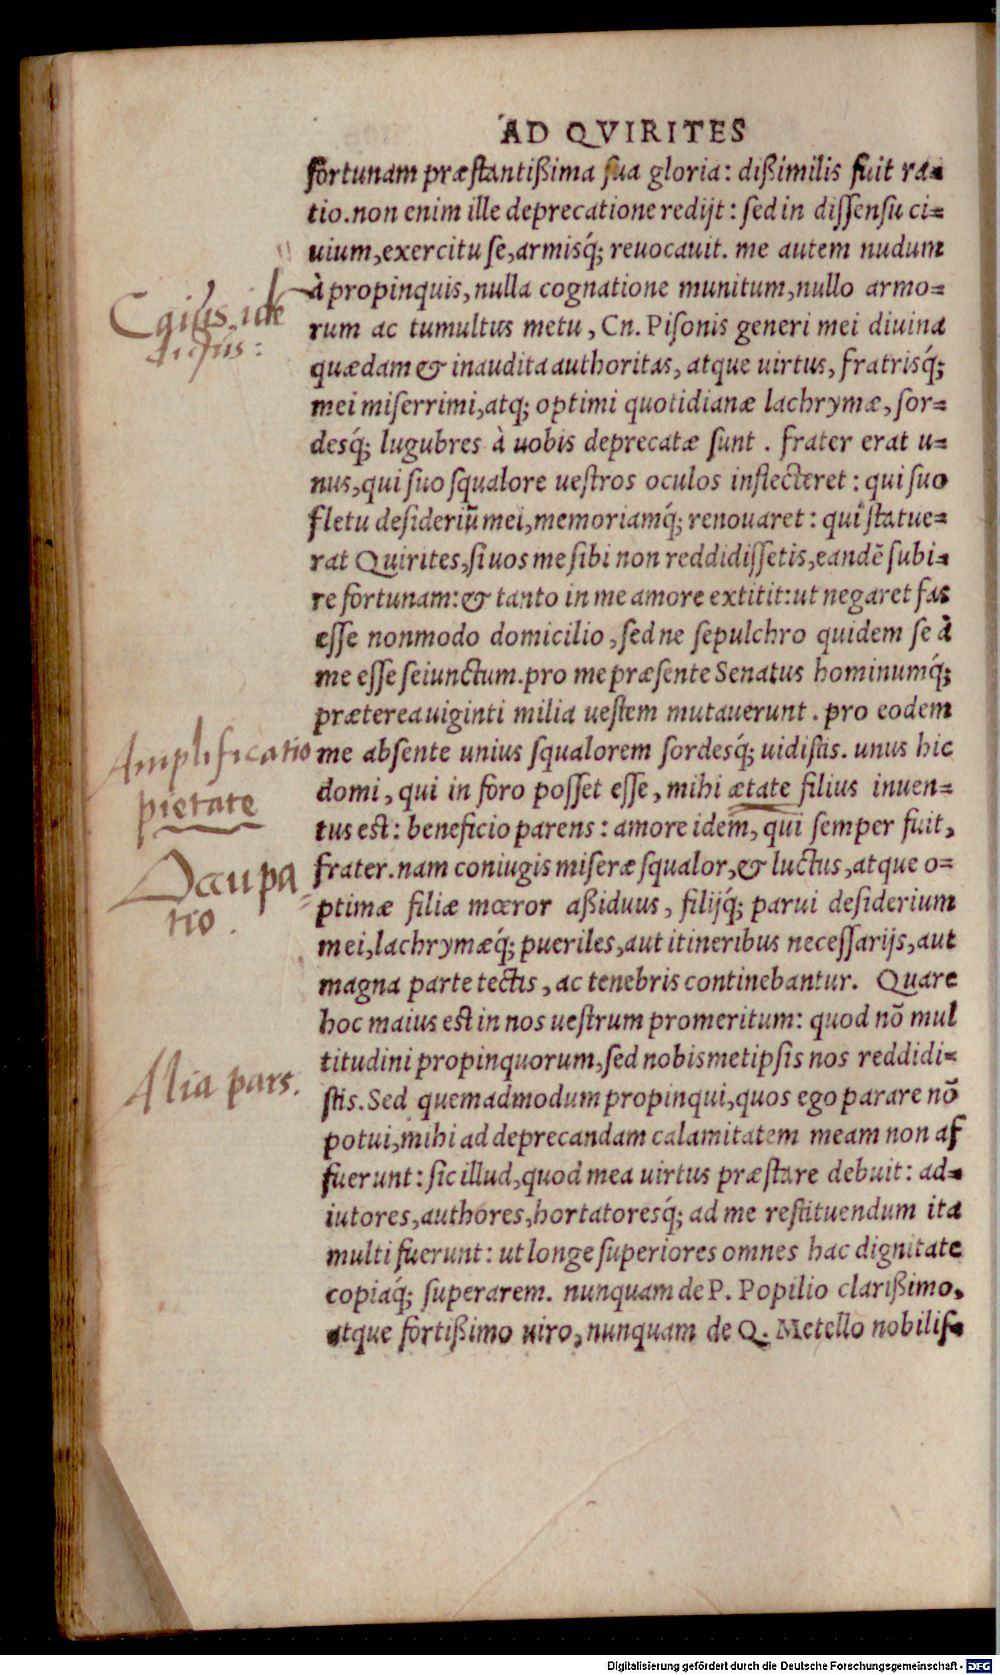 AD QVIRITES
fortunam præstantißima sua gloria: dißimilis fuit ra=
tio. non enim ille deprecatione redijt: sed in dissensu ci=
uium, exercitu se, armisq́; reuocauit. me autem nudum
à propinquis, nulla cognatione munitum, nullo armo=
rum ac tumultus metu, Cn. Pisonis generi mei diuina
quædam & inaudita authoritas, atque uirtus, fratrisq́;
mei miserrimi, atq; optimi quotidianæ lachrymæ, sor=
desq́; lugubres à uobis deprecatæ sunt. frater erat u=
nus, qui suo squalore uestros oculos inflecteret: qui suo
fletu desideriū mei, memoriamq́; renouaret: qui statue=
rat Quirites, si uos me sibi non reddidissetis, eandē subi=
re fortunam: & tanto in me amore extitit: ut negaret fas
esse nonmodo domicilio, sed ne sepulchro quidem se à
me esse seiunctum. pro me præsente Senatus hominumq́;
præterea uiginti milia uestem mutauerunt. pro eodem
me absente unius squalorem sordesq́; uidistis. unus hic
domi, qui in foro posset esse, mihi ætate filius inuen=
tus est: beneficio parens: amore idem, qui semper fuit,
frater. nam coniugis miseræ squalor, & luctus, atque o=
ptimæ filiæ mœror aßiduus, filijq́; parui desiderium
mei, lachrymæq́; pueriles, aut itineribus necessarijs, aut
magna parte tectis, ac tenebris continebantur. Quare
hoc maius est in nos uestrum promeritum: quod nō mul
titudini propinquorum, sed nobismetipsis nos reddidi=
stis. Sed quemadmodum propinqui, quos ego parare nō
potui, mihi ad deprecandam calamitatem meam non af
fuerunt: sic illud, quod mea uirtus præstare debuit: ad=
iutores, authores, hortatoresq́; ad me restituendum ita
multi fuerunt: ut longe superiores omnes hac dignitate
copiaq́; superarem. nunquam de P. Popilio clarißimo,
atque fortißimo uiro, nunquam de Q. Metello nobilis=
Amplificatio
pietate
Occupa
tio.
Alia pars.
Digitalisierung gefördert durch die Deutsche Forschungsgemeinschaft - DFG